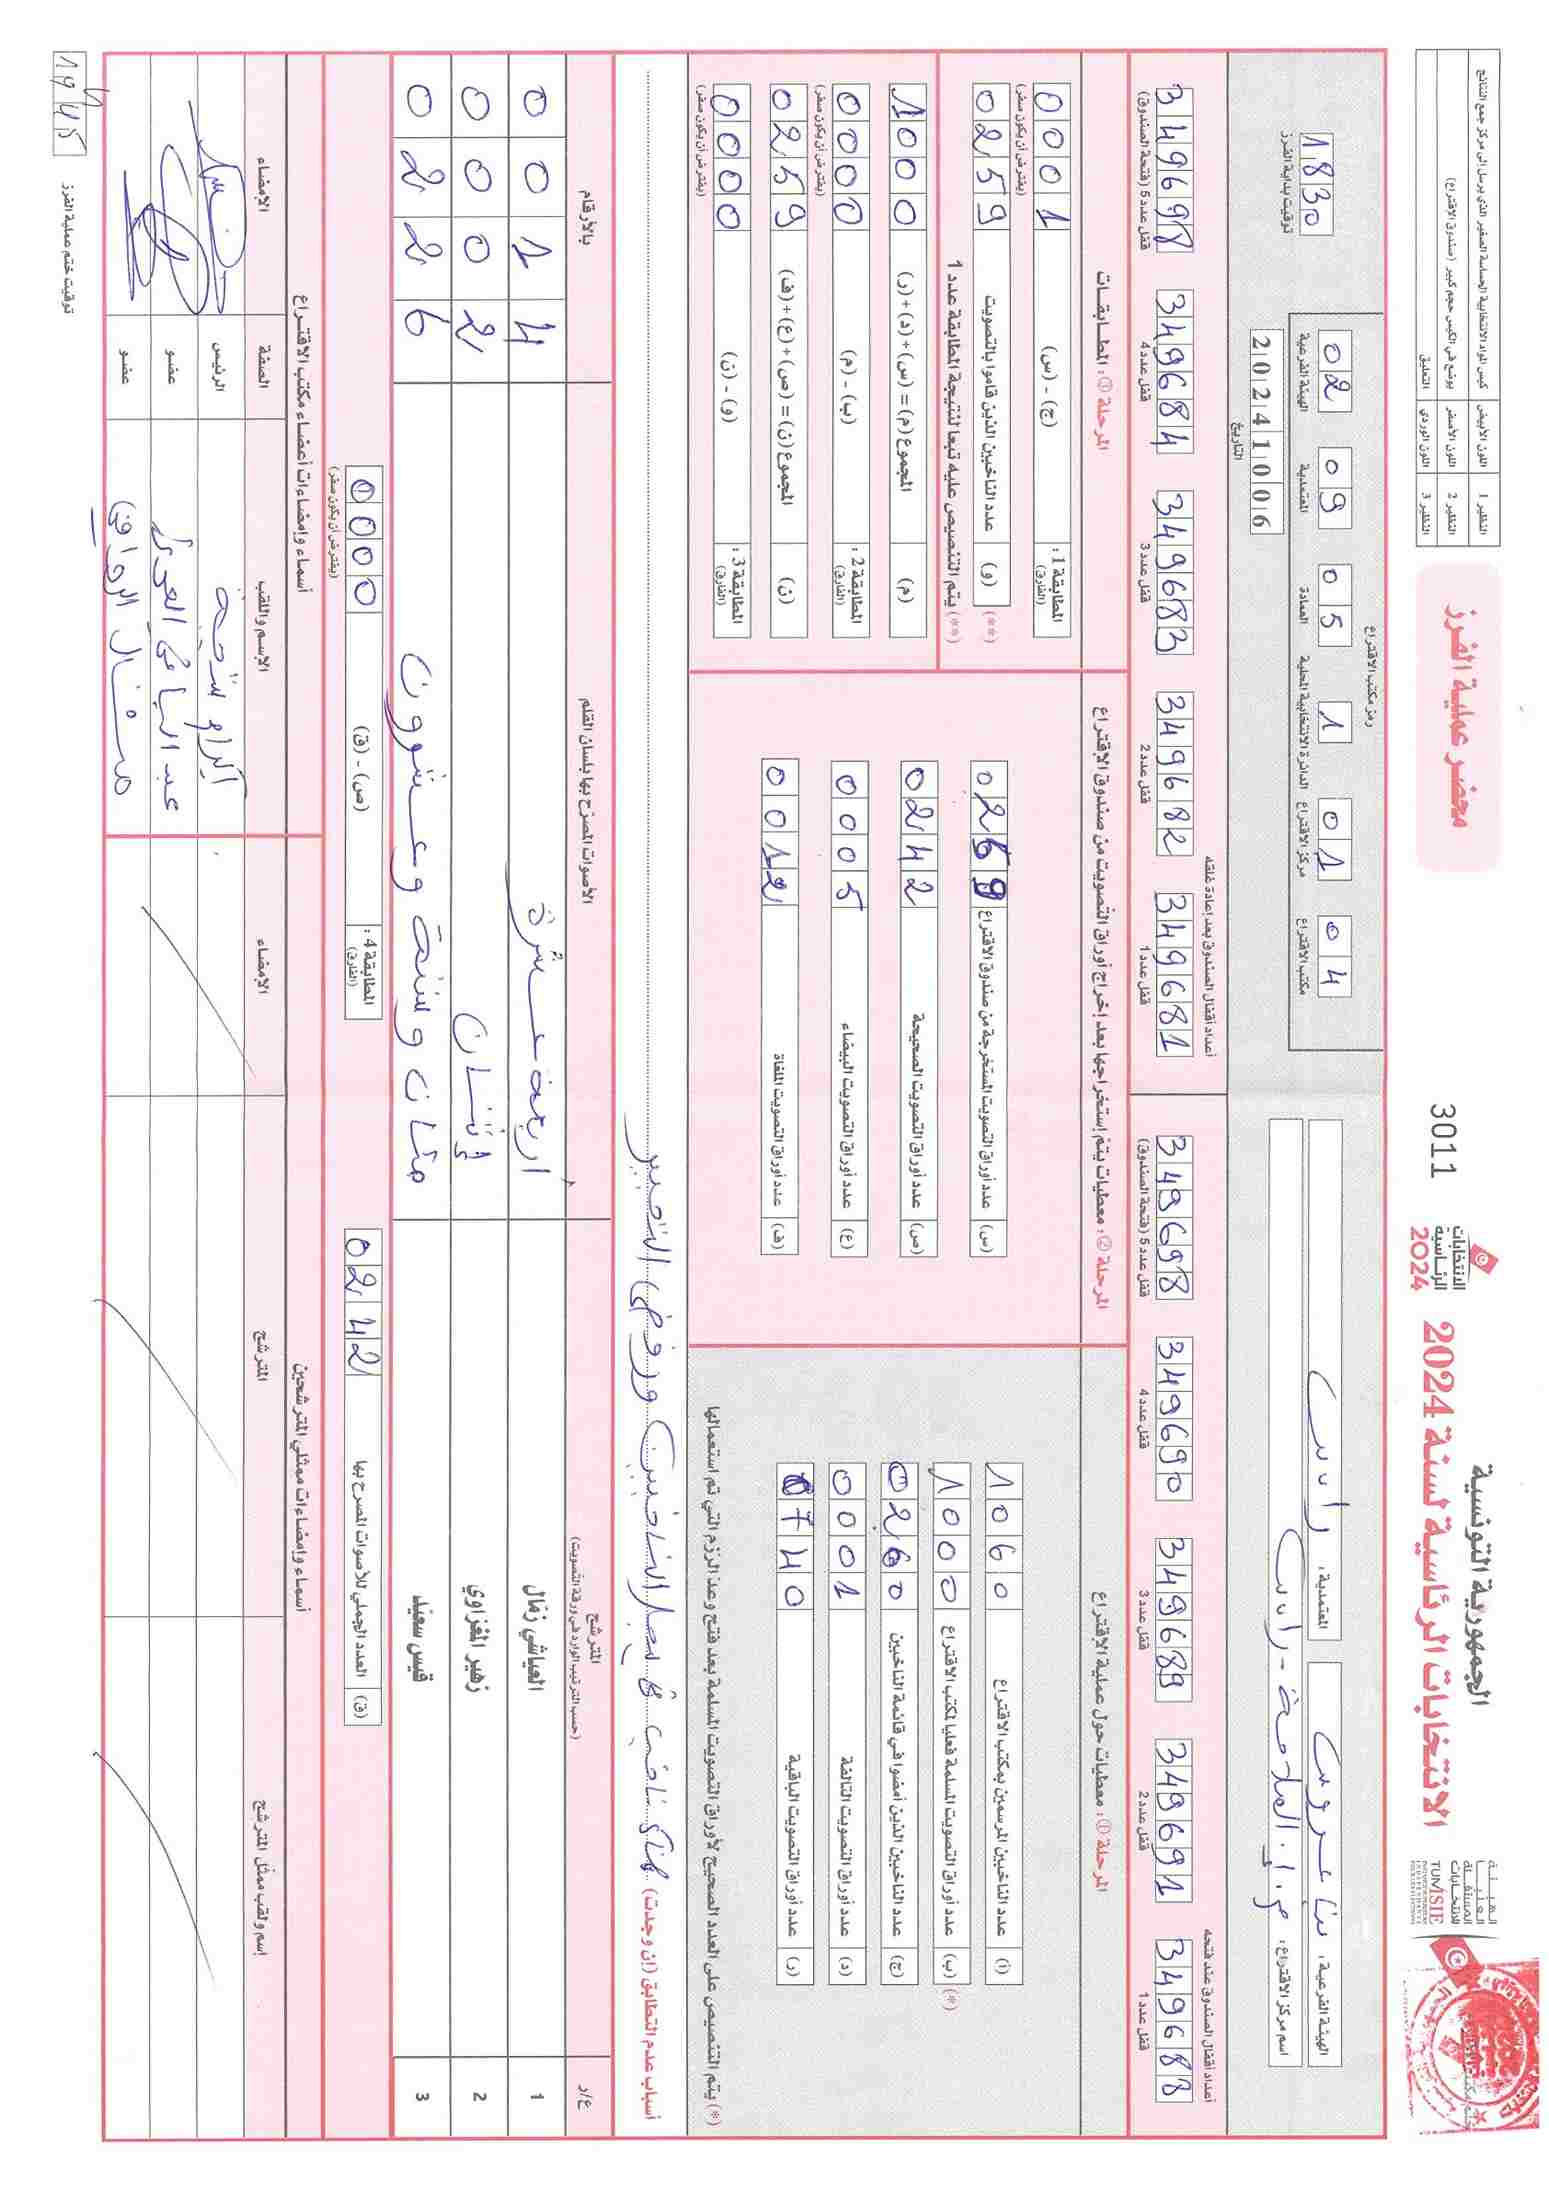 الجمهورية التونسية
الانتخابات الرئاسية لسنة 2024
الهيئة
العليا
المستقلة
للانتخابات
TUNISIE
الانتخابات
الرئاسية
2024
3011
محضر عملية الفرز
النظير 1 اللون الأبيض كيس المواد الانتخابية الحساسة الصغير الذي يرسل إلى مركز جمع النتائج
النظير 2 اللون الأصفر يوضع في الكيس حجم كبير (صندوق الاقتراع)
النظير 3 اللون الوردي التعليق
الهيئة الفرعية: بن عروس
المعتمدية: رادس
اسم مركز الاقتراع: م.إ. الملاحة - رادس
رمز مكتب الاقتراع
02 الهيئة الفرعية
09 المعتمدية
05 العمادة
1 الدائرة الانتخابية المحلية
01 مركز الاقتراع
04 مكتب الاقتراع
20241006
التاريخ
1830
توقيت بداية الفرز
أعداد أقفال الصندوق عند فتحه
349688 قفل عدد 1
349691 قفل عدد 2
349689 قفل عدد 3
349690 قفل عدد 4
349698 قفل عدد 5 (فتحة الصندوق)
أعداد أقفال الصندوق بعد إعادة غلقه
349681 قفل عدد 1
349682 قفل عدد 2
349683 قفل عدد 3
349684 قفل عدد 4
349698 قفل عدد 5 (فتحة الصندوق)
المرحلة ①: معطيات حول عملية الاقتراع
(أ) عدد الناخبين المرسمين بمكتب الاقتراع 1060
(*) (ب) عدد أوراق التصويت المسلمة فعليا لمكتب الاقتراع 1000
(ج) عدد الناخبين الذين أمضوا في قائمة الناخبين 0260
(د) عدد أوراق التصويت التالفة 0001
(ر) عدد أوراق التصويت الباقية 0740
(*) يتم التنصيص على العدد الصحيح لأوراق التصويت المسلمة بعد فتح وعد الرزم التي تم استعمالها
المرحلة ②: معطيات يتم إستخراجها بعد إخراج أوراق التصويت من صندوق الاقتراع
(س) عدد أوراق التصويت المستخرجة من صندوق الاقتراع 0259
(ص) عدد أوراق التصويت الصحيحة 0242
(ع) عدد أوراق التصويت البيضاء 0005
(ف) عدد أوراق التصويت الملغاة 0012
المرحلة ③: المطابقات
المطابقة 1: (الفارق) (ج) - (س) 0001
(يفترض أن يكون صفر)
(**) (و) عدد الناخبين الذين قاموا بالتصويت 0259
(**) يتم التنصيص عليه تبعا لنتيجة المطابقة عدد 1
(م) المجموع (م) = (س) + (د) + (ر) 1000
المطابقة 2: (الفارق) (ب) - (م) 0000
(يفترض أن يكون صفر)
(ن) المجموع (ن) = (ص) + (ع) + (ف) 0259
المطابقة 3: (الفارق) (و) - (ن) 0000
(يفترض أن يكون صفر)
أسباب عدم التطابق (إن وجدت)
ع/ر المترشح (حسب الترتيب الوارد في ورقة التصويت) الأصوات المصرّح بها بلسان القلم بالأرقام
1 العياشي زمّال أربعة عشرة 0014
2 زهير المغزاوي إثنان 0002
3 قيس سعيّد مئتان وستة وعشرون 0226
(ق) العدد الجملي للأصوات المصرح بها 0242
المطابقة 4: (الفارق) (ص) - (ق) 0000
(يفترض أن يكون صفر)
أسماء وإمضاءات ممثلي المترشحين
إسم ولقب ممثل المترشح المترشح الإمضاء
أسماء وإمضاءات أعضاء مكتب الاقتراع
الإسم واللقب الصفة الإمضاء
الرئيس
عضو
عضو
توقيت ختم عملية الفرز